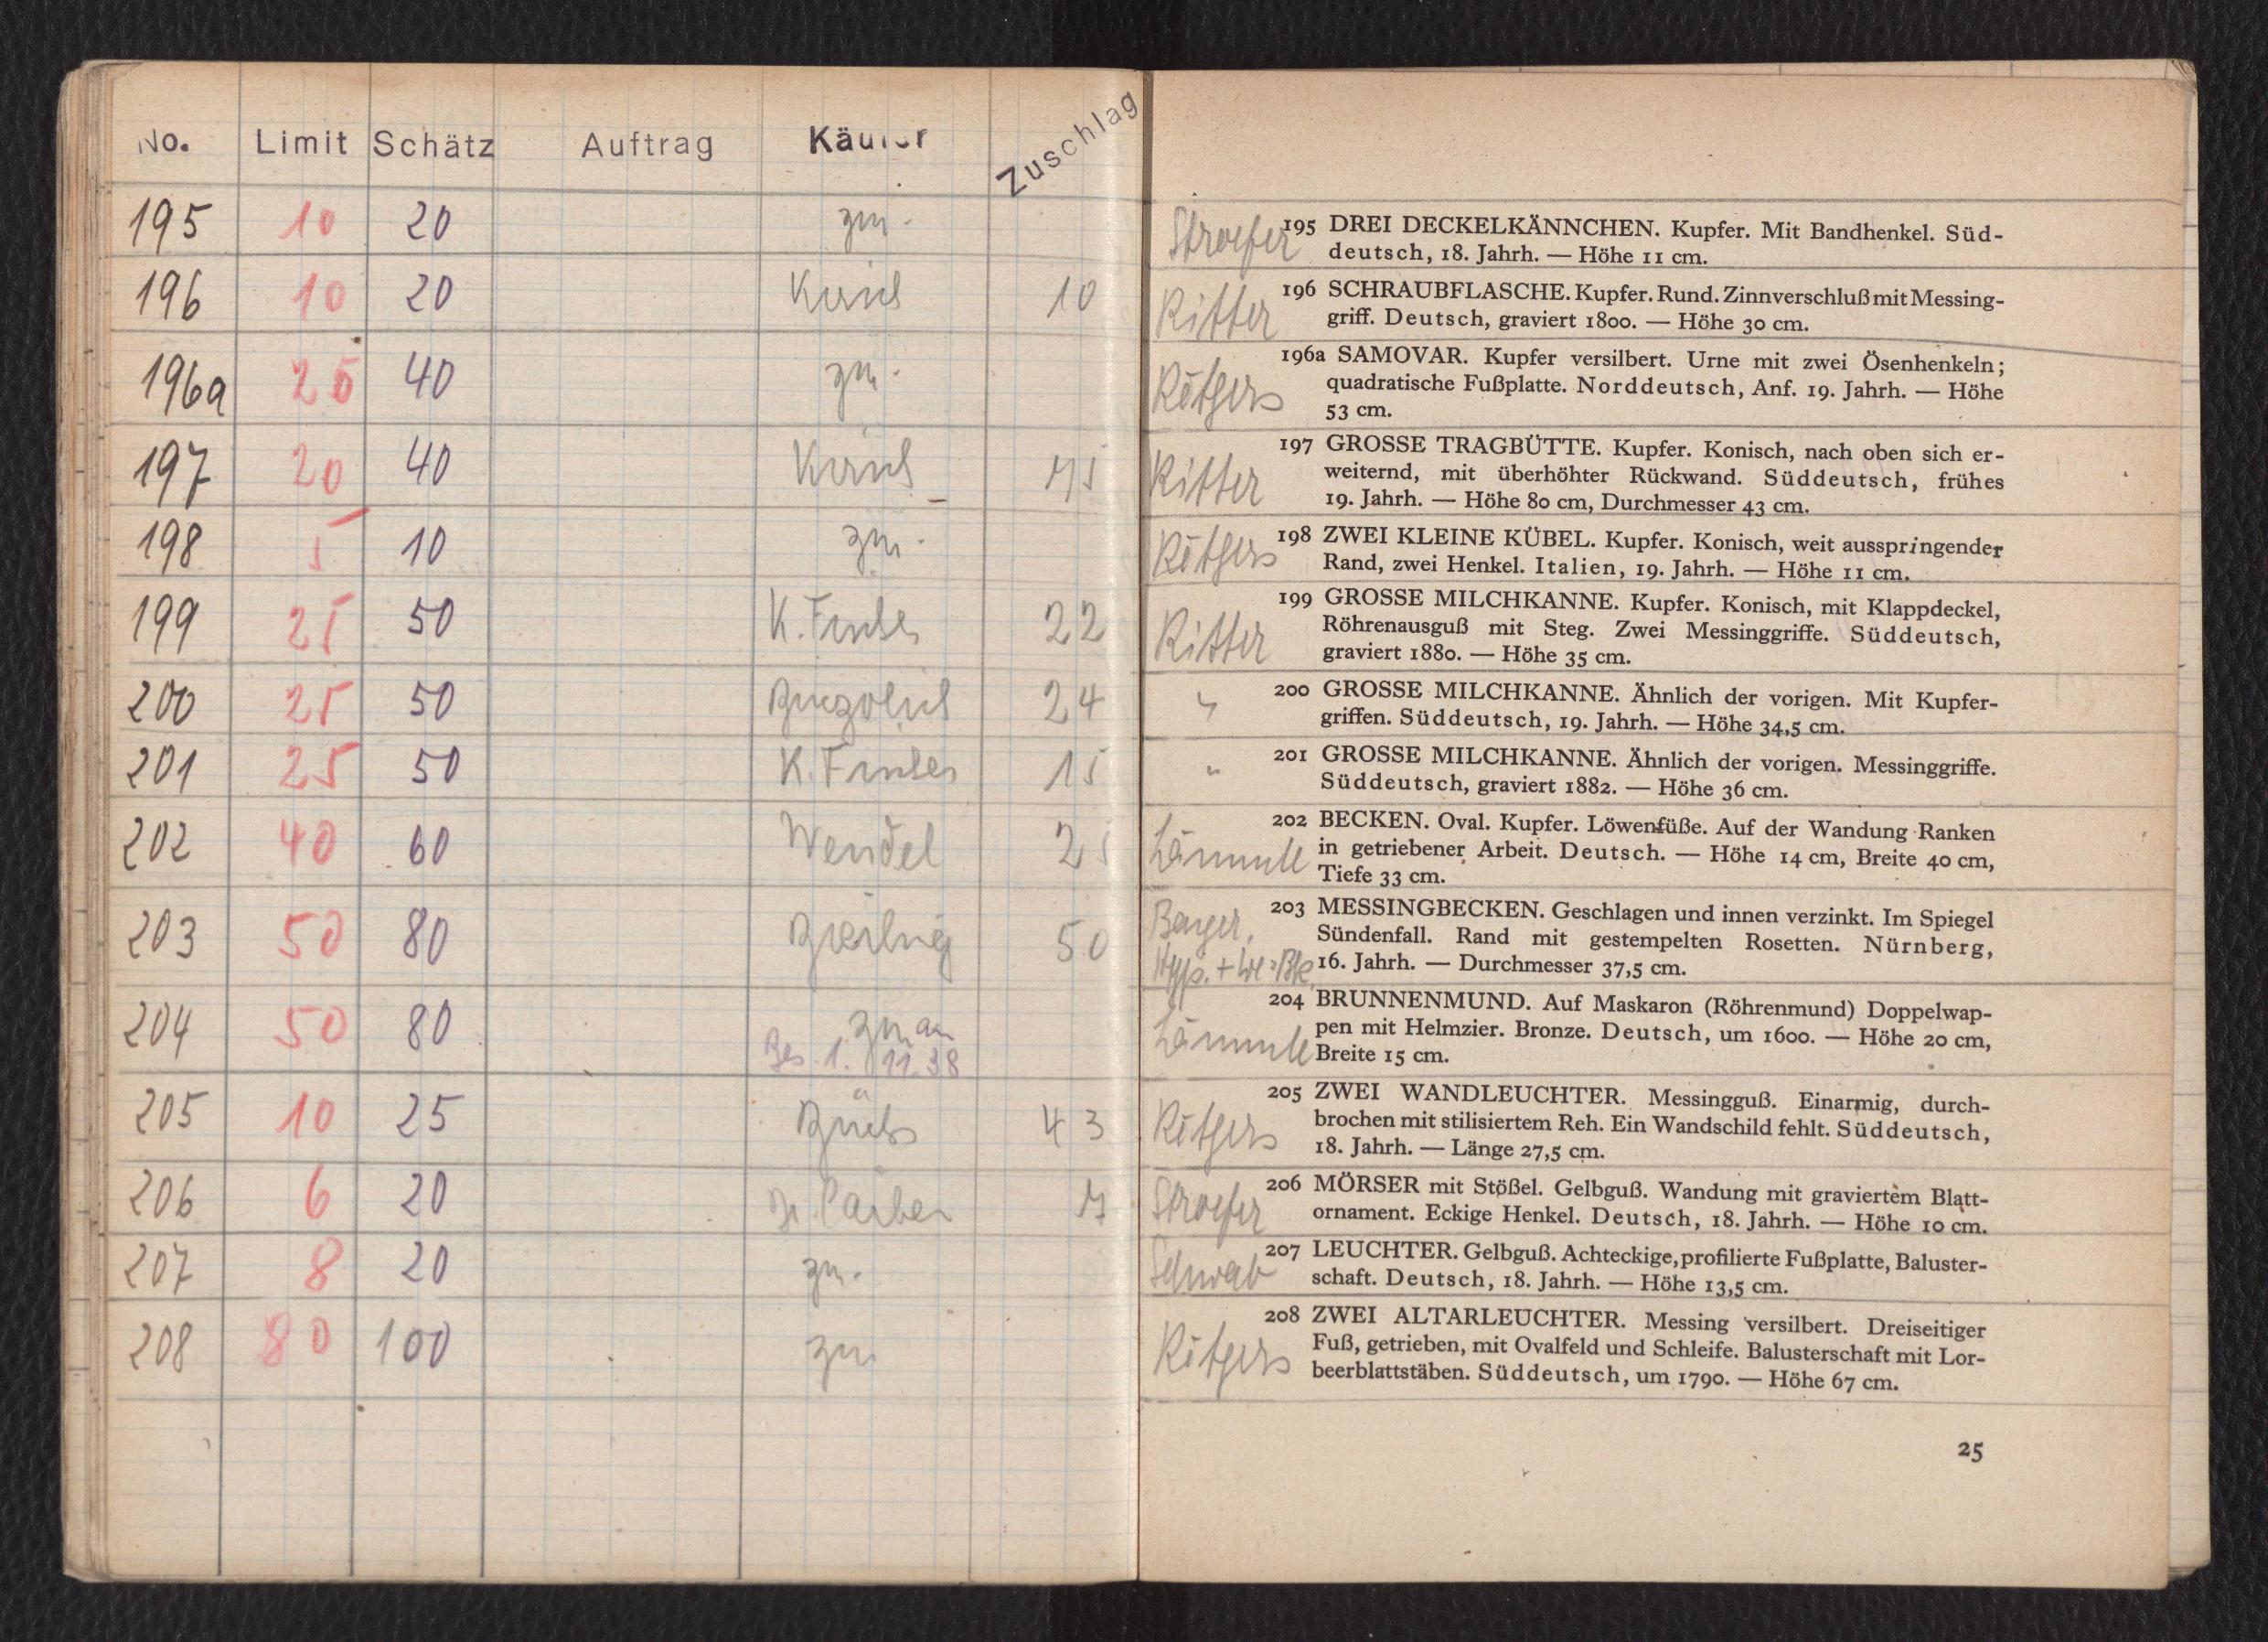 No. Limit Schätz Auftrag Käufer Zuschlag
195 10 20 zur.
196 10 20 10
196a 25 40 zur.
197 20 40
198 5 10 zur.
199 25 50 K. 22
200 25 50 24
201 25 50 K. 15
202 40 60 Wendel 25
203 50 80 50
204 50 80 zur an
Bes. 1. 11.38
205 10 25 43
206 6 20 Dr.
207 8 20 zur.
208 80 100 zur
Stroefer 195 DREI DECKELKÄNNCHEN. Kupfer. Mit Bandhenkel. Süd-
deutsch, 18. Jahrh. — Höhe 11 cm.
Ritter 196 SCHRAUBFLASCHE. Kupfer. Rund. Zinnverschluß mit Messing-
griff. Deutsch, graviert 1800. — Höhe 30 cm.
196a SAMOVAR. Kupfer versilbert. Urne mit zwei Ösenhenkeln;
Rötgers quadratische Fußplatte. Norddeutsch, Anf. 19. Jahrh. — Höhe
53 cm.
197 GROSSE TRAGBÜTTE. Kupfer. Konisch, nach oben sich er-
Ritter weiternd, mit überhöhter Rückwand. Süddeutsch, frühes
19. Jahrh. — Höhe 80 cm, Durchmesser 43 cm.
Rötgers 198 ZWEI KLEINE KÜBEL. Kupfer. Konisch, weit ausspringender
Rand, zwei Henkel. Italien, 19. Jahrh. — Höhe 11 cm.
199 GROSSE MILCHKANNE. Kupfer. Konisch, mit Klappdeckel,
Ritter Röhrenausguß mit Steg. Zwei Messinggriffe. Süddeutsch,
graviert 1880. — Höhe 35 cm.
" 200 GROSSE MILCHKANNE. Ähnlich der vorigen. Mit Kupfer-
griffen. Süddeutsch, 19. Jahrh. — Höhe 34,5 cm.
" 201 GROSSE MILCHKANNE. Ähnlich der vorigen. Messinggriffe.
Süddeutsch, graviert 1882. — Höhe 36 cm.
202 BECKEN. Oval. Kupfer. Löwenfüße. Auf der Wandung Ranken
Lämmle in getriebener Arbeit. Deutsch. — Höhe 14 cm, Breite 40 cm,
Tiefe 33 cm.
Bayer. 203 MESSINGBECKEN. Geschlagen und innen verzinkt. Im Spiegel
Sündenfall. Rand mit gestempelten Rosetten. Nürnberg,
Hyp. + We=Bk. 16. Jahrh. — Durchmesser 37,5 cm.
204 BRUNNENMUND. Auf Maskaron (Röhrenmund) Doppelwap-
Lämmle pen mit Helmzier. Bronze. Deutsch, um 1600. — Höhe 20 cm,
Breite 15 cm.
205 ZWEI WANDLEUCHTER. Messingguß. Einarmig, durch-
Rötgers brochen mit stilisiertem Reh. Ein Wandschild fehlt. Süddeutsch,
18. Jahrh. — Länge 27,5 cm.
Stroefer 206 MÖRSER mit Stößel. Gelbguß. Wandung mit graviertem Blatt-
ornament. Eckige Henkel. Deutsch, 18. Jahrh. — Höhe 10 cm.
Schwab 207 LEUCHTER. Gelbguß. Achteckige, profilierte Fußplatte, Baluster-
schaft. Deutsch, 18. Jahrh. — Höhe 13,5 cm.
208 ZWEI ALTARLEUCHTER. Messing versilbert. Dreiseitiger
Rötgers Fuß, getrieben, mit Ovalfeld und Schleife. Balusterschaft mit Lor-
beerblattstäben. Süddeutsch, um 1790. — Höhe 67 cm.
25